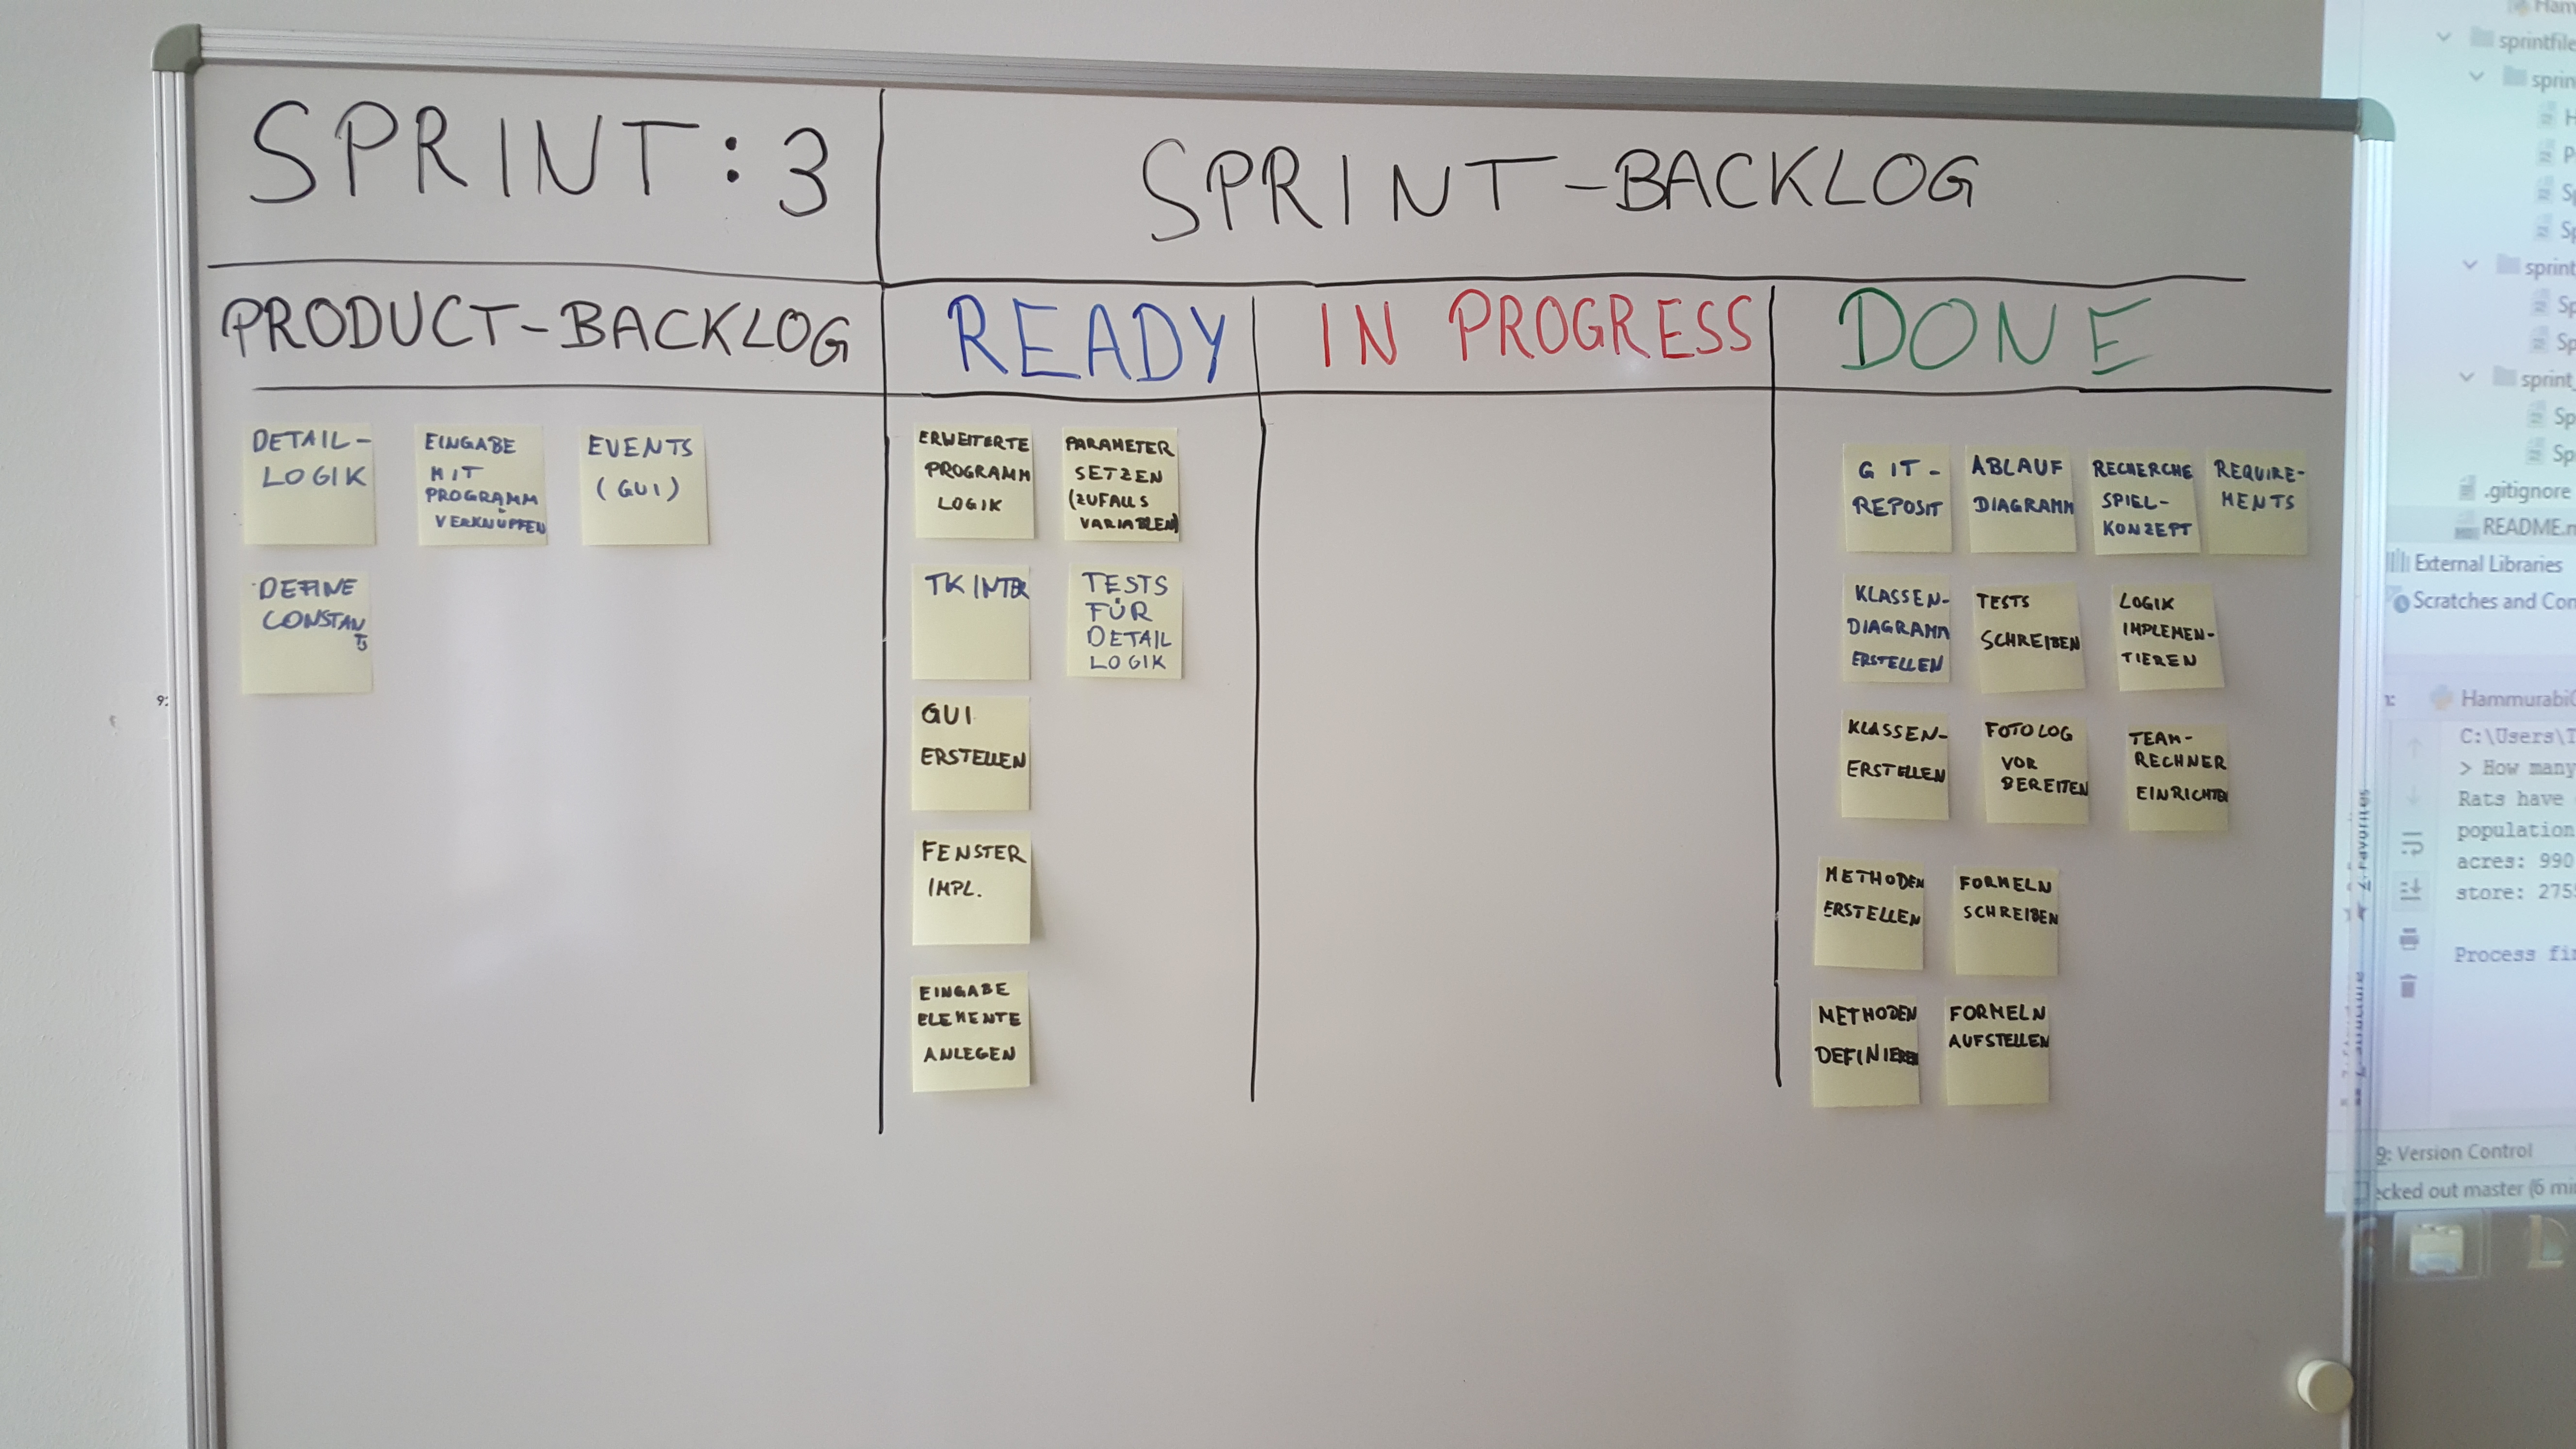 SPRINT: 3
SPRINT-BACKLOG
PRODUCT-BACKLOG
READY
IN PROGRESS
DONE
DETAIL-
LOGIK
EINGABE
MIT
PROGRAMM
VERKNÜPFEN
EVENTS
(GUI)
DEFINE
CONSTANTS
ERWEITERTE
PROGRAMM
LOGIK
PARAMETER
SETZEN
(ZUFALLS
VARIABLEN)
TKINTER
TESTS
FÜR
DETAIL
LOGIK
GUI
ERSTELLEN
FENSTER
IMPL.
EINGABE
ELEMENTE
ANLEGEN
GIT-
REPOSIT
ABLAUF
DIAGRAMM
RECHERCHE
SPIEL-
KONZEPT
REQUIRE-
MENTS
KLASSEN-
DIAGRAMM
ERSTELLEN
TESTS
SCHREIBEN
LOGIK
IMPLEMEN-
TIEREN
KLASSEN-
ERSTELLEN
FOTOLOG
VOR
BEREITEN
TEAM-
RECHNER
EINRICHTEN
METHODEN
ERSTELLEN
FORMELN
SCHREIBEN
METHODEN
DEFINIEREN
FORMELN
AUFSTELLEN
Ham
sprintfile
sprin
H
P
Sp
Sp
sprint
Sp
Sp
sprint_
Sp
Sp
.gitignore
README.m
External Libraries
Scratches and Con
Hammurabi
C:\Users\T
> How many
Rats have
population
acres: 990
store: 275
Process fi
2: Favorites
9: Version Control
ecked out master (6 mi
9: